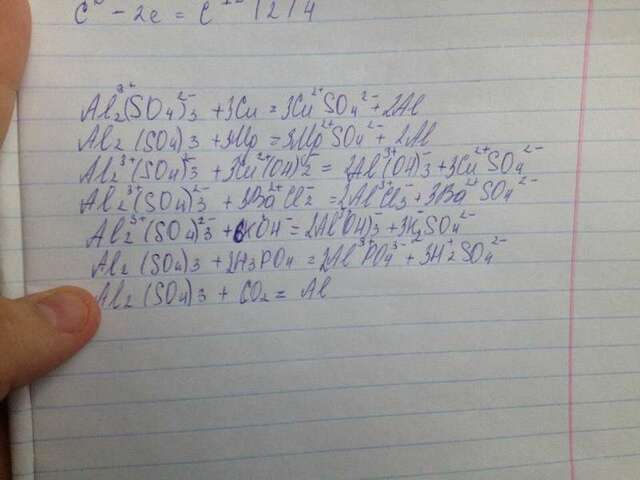 C⁰ - 2e = C⁺² | 2 | 4
Al₂³⁺(SO₄)²⁻₃ + 3Cu = 3Cu²⁺SO₄²⁻ + 2Al
Al₂(SO₄)₃ + 3Mg = 3Mg²⁺SO₄²⁻ + 2Al
Al₂³⁺(SO₄)²⁻₃ + 3Cu²⁺(OH)⁻₂ = 2Al³⁺(OH)⁻₃ + 3Cu²⁺SO₄²⁻
Al₂³⁺(SO₄)²⁻₃ + 3Ba²⁺Cl₂⁻ = 2Al³⁺Cl₃⁻ + 3Ba²⁺SO₄²⁻
Al₂³⁺(SO₄)²⁻₃ + 6K⁺OH⁻ = 2Al³⁺(OH)⁻₃ + 3K₂SO₄²⁻
Al₂(SO₄)₃ + 2H₃PO₄ = 2Al³⁺PO₄³⁻ + 3H₂⁺SO₄²⁻
Al₂(SO₄)₃ + CO₂ = Al